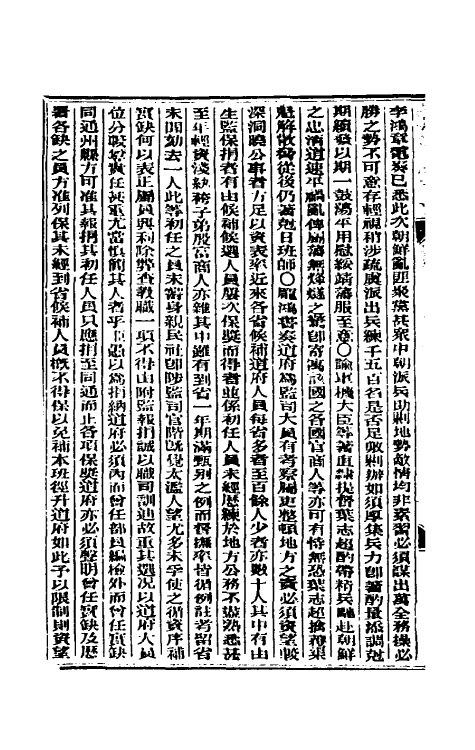 李鴻章電奏已悉此次朝鮮亂匪聚黨甚眾中朝派兵助剿地勢敵情均非素習必須謀出萬全務操必
勝之勢不可意存輕視稍涉疏虞派出兵練千五百名是否足敷剿辦如須厚集兵力卽著酌量添調剋
期續發以期一鼓蕩平用慰綏靖藩服至意〇諭軍機大臣等著直隸提督葉志超酌帶精兵馳赴朝鮮
之忠清道速平亂俾屬藩無烽燧之驚卽寄寓該國之各國官商人等亦可有恃無恐葉志超擒薙渠
魁解散脅從後仍著剋日班師〇龐鴻書奏道府為監司大員有考察屬吏整頓地方之責必須資望較
深洞曉公事者方足以資表率近來各省候補道府人員每省多者至百餘人少者亦數十人其中有由
生監保捐者有由候補候選人員屢次保獎而得者並係初任人員未經歷練於地方公務不盡熟悉甚
至年輕資淺紈袴子弟殷富商人亦雜其中雖有到省一年期滿甄別之例而督撫率皆循例註考留省
未聞劾去一人此等初任之員未嘗身親民社卽陟監司官階既覺太濫人望尤多未孚使之循資序補
實缺何以表正屬員興利除弊查教職一項不得由附監報捐誠以職司訓迪故重其選況以道府大員
位分較崇責任甚重尤當慎簡其人者乎臣愚以為捐納道府必須內而曾任部員編檢外而曾任實缺
同通州縣方可准其報捐其初任人員只應捐至同通而止各項保獎道府亦必須聲明曾任實缺及歷
署各缺之員方准列保其未經到省候補人員概不得保以免補本班徑升道府如此予以限制則資望